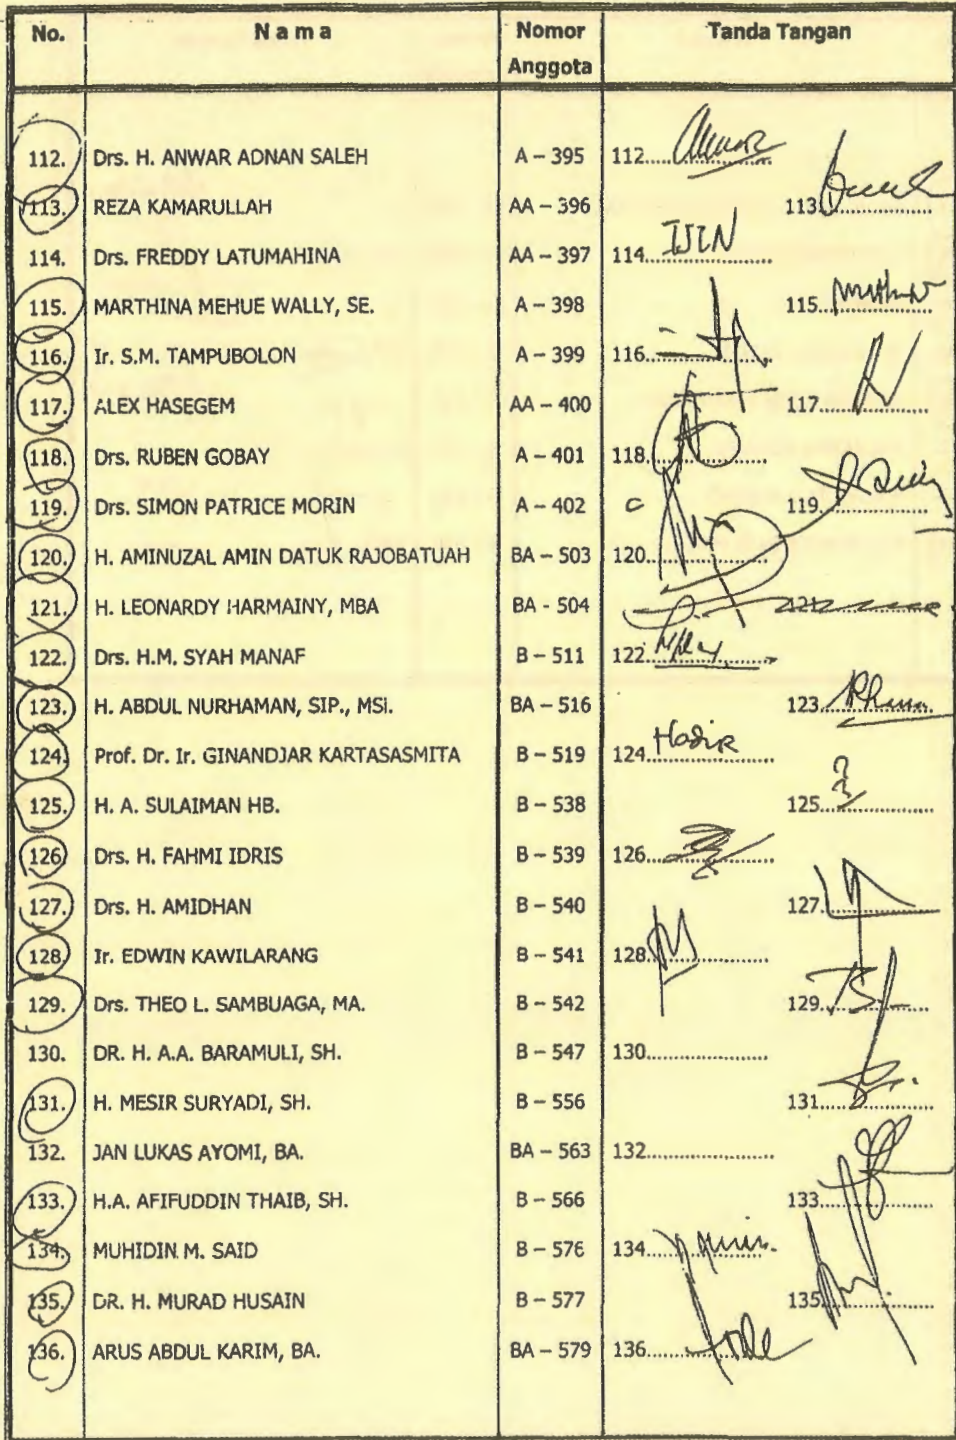 No. Nama Nomor Anggota Tanda Tangan
112. Drs. H. ANWAR ADNAN SALEH A – 395 112....
113. REZA KAMARULLAH AA – 396 113....
114. Drs. FREDDY LATUMAHINA AA – 397 114.... IJIN
115. MARTHINA MEHUE WALLY, SE. A – 398 115....
116. Ir. S.M. TAMPUBOLON A – 399 116....
117. ALEX HASEGEM AA – 400 117....
118. Drs. RUBEN GOBAY A – 401 118....
119. Drs. SIMON PATRICE MORIN A – 402 119....
120. H. AMINUZAL AMIN DATUK RAJOBATUAH BA – 503 120....
121. H. LEONARDY HARMAINY, MBA BA - 504 121....
122. Drs. H.M. SYAH MANAF B – 511 122....
123. H. ABDUL NURHAMAN, SIP., MSi. BA – 516 123....
124. Prof. Dr. Ir. GINANDJAR KARTASASMITA B – 519 124.... Hadir
125. H. A. SULAIMAN HB. B – 538 125....
126. Drs. H. FAHMI IDRIS B – 539 126....
127. Drs. H. AMIDHAN B – 540 127....
128. Ir. EDWIN KAWILARANG B – 541 128....
129. Drs. THEO L. SAMBUAGA, MA. B – 542 129....
130. DR. H. A.A. BARAMULI, SH. B – 547 130....
131. H. MESIR SURYADI, SH. B – 556 131....
132. JAN LUKAS AYOMI, BA. BA – 563 132....
133. H.A. AFIFUDDIN THAIB, SH. B – 566 133....
134. MUHIDIN M. SAID B – 576 134....
135. DR. H. MURAD HUSAIN B – 577 135....
136. ARUS ABDUL KARIM, BA. BA – 579 136....